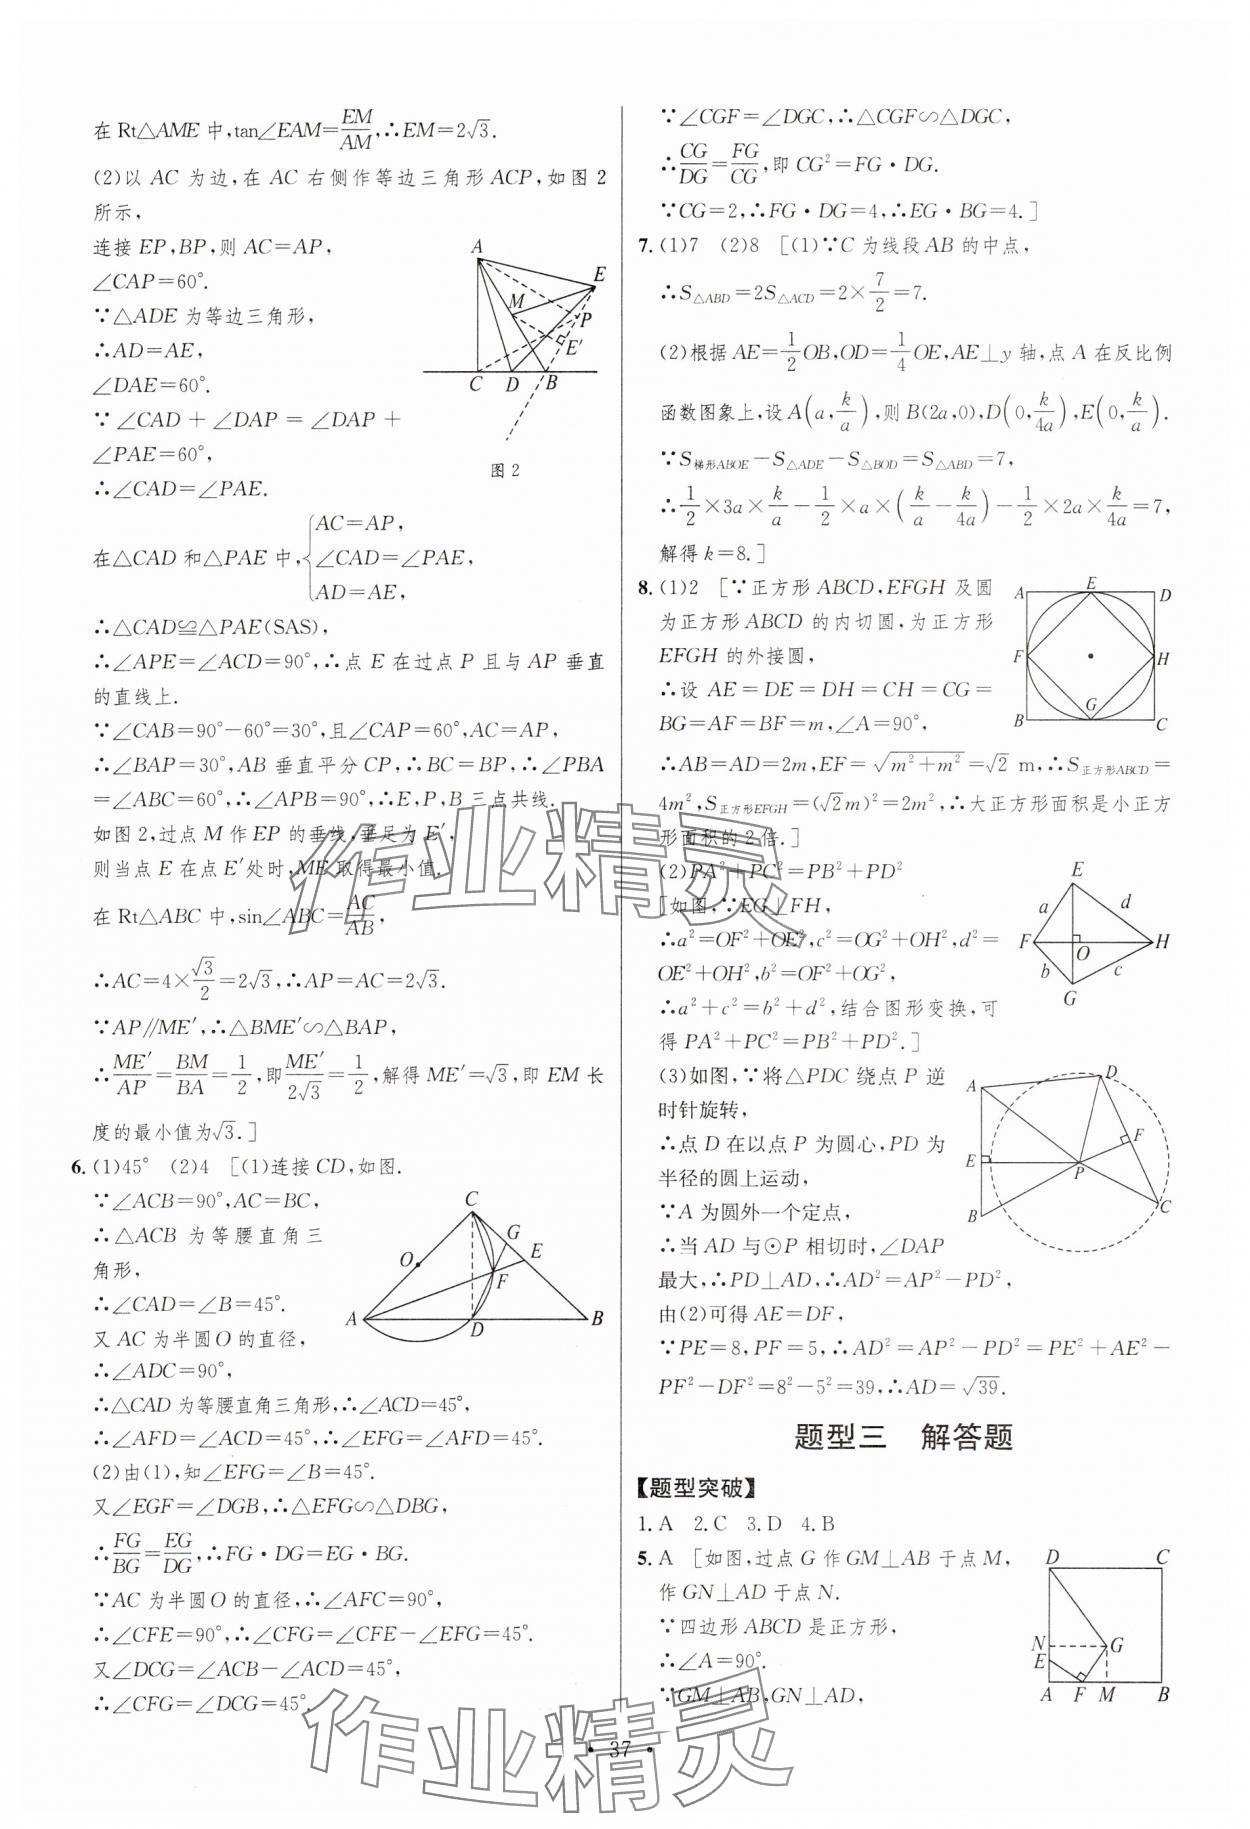 在 Rt△AME 中,tan∠EAM=EM/AM,∴EM=2√3.
(2)以 AC 为边,在 AC 右侧作等边三角形 ACP,如图 2
所示,
连接 EP,BP,则 AC=AP,
∠CAP=60°.
∵△ADE 为等边三角形,
∴AD=AE,
∠DAE=60°.
∵∠CAD+∠DAP=∠DAP+
∠PAE=60°,
∴∠CAD=∠PAE.
A
E
M
P
E′
C D B
图 2
在△CAD 和△PAE 中,{AC=AP,
∠CAD=∠PAE,
AD=AE,
∴△CAD≌△PAE(SAS),
∴∠APE=∠ACD=90°,∴点 E 在过点 P 且与 AP 垂直
的直线上.
∵∠CAB=90°-60°=30°,且∠CAP=60°,AC=AP,
∴∠BAP=30°,AB 垂直平分 CP,∴BC=BP,∴∠PBA
=∠ABC=60°,∴∠APB=90°,∴E,P,B 三点共线.
如图 2,过点 M 作 EP 的垂线,垂足为 E′,
则当点 E 在点 E′处时,ME 取得最小值.
在 Rt△ABC 中,sin∠ABC=AC/AB,
∴AC=4×√3/2=2√3,∴AP=AC=2√3.
∵AP∥ME′,∴△BME′∽△BAP,
∴ME′/AP=BM/BA=1/2,即ME′/2√3=1/2,解得 ME′=√3,即 EM 长
度的最小值为√3.]
6. (1)45° (2)4 [(1)连接 CD,如图.
∵∠ACB=90°,AC=BC,
∴△ACB 为等腰直角三
角形,
∴∠CAD=∠B=45°.
又 AC 为半圆 O 的直径,
∴∠ADC=90°,
C
G
E
O
F
A D B
∴△CAD 为等腰直角三角形,∴∠ACD=45°,
∴∠AFD=∠ACD=45°,∴∠EFG=∠AFD=45°.
(2)由(1),知∠EFG=∠B=45°.
又∠EGF=∠DGB,∴△EFG∽△DBG,
∴FG/BG=EG/DG,∴FG·DG=EG·BG.
∵AC 为半圆 O 的直径,∴∠AFC=90°,
∴∠CFE=90°,∴∠CFG=∠CFE-∠EFG=45°.
又∠DCG=∠ACB-∠ACD=45°,
∴∠CFG=∠DCG=45°.
∵∠CGF=∠DGC,∴△CGF∽△DGC,
∴CG/DG=FG/CG,即 CG²=FG·DG.
∵CG=2,∴FG·DG=4,∴EG·BG=4.]
7. (1)7 (2)8 [(1)∵C 为线段 AB 的中点,
∴S△ABD=2S△ACD=2×7/2=7.
(2)根据 AE=1/2OB,OD=1/4OE,AE⊥y 轴,点 A 在反比例
函数图象上,设 A(a,k/a),则 B(2a,0),D(0,k/4a),E(0,k/a).
∵S梯形ABOE-S△ADE-S△BOD=S△ABD=7,
∴1/2×3a×k/a-1/2×a×(k/a-k/4a)-1/2×2a×k/4a=7,
解得 k=8.]
8. (1)2 [∵正方形 ABCD,EFGH 及圆
为正方形 ABCD 的内切圆,为正方形
EFGH 的外接圆,
∴设 AE=DE=DH=CH=CG=
BG=AF=BF=m,∠A=90°,
A E D
F H
B G C
∴AB=AD=2m,EF=√(m²+m²)=√2 m,∴S正方形ABCD=
4m²,S正方形EFGH=(√2m)²=2m²,∴大正方形面积是小正方
形面积的 2 倍.]
(2)PA²+PC²=PB²+PD²
[如图,∵EG⊥FH,
∴a²=OF²+OE²,c²=OG²+OH²,d²=
OE²+OH²,b²=OF²+OG²,
∴a²+c²=b²+d²,结合图形变换,可
得 PA²+PC²=PB²+PD².]
E
a d
F O H
b c
G
(3)如图,∵将△PDC 绕点 P 逆
时针旋转,
∴点 D 在以点 P 为圆心,PD 为
半径的圆上运动,
∵A 为圆外一个定点,
∴当 AD 与⊙P 相切时,∠DAP
最大,∴PD⊥AD,∴AD²=AP²-PD²,
A D
F
E P
B C
由(2)可得 AE=DF,
∵PE=8,PF=5,∴AD²=AP²-PD²=PE²+AE²-
PF²-DF²=8²-5²=39,∴AD=√39.
题型三 解答题
【题型突破】
1. A 2. C 3. D 4. B
5. A [如图,过点 G 作 GM⊥AB 于点 M,
作 GN⊥AD 于点 N.
∵四边形 ABCD 是正方形,
∴∠A=90°.
∵GM⊥AB,GN⊥AD,
D C
N G
E
A F M B
·37·
作业精灵
作业精灵